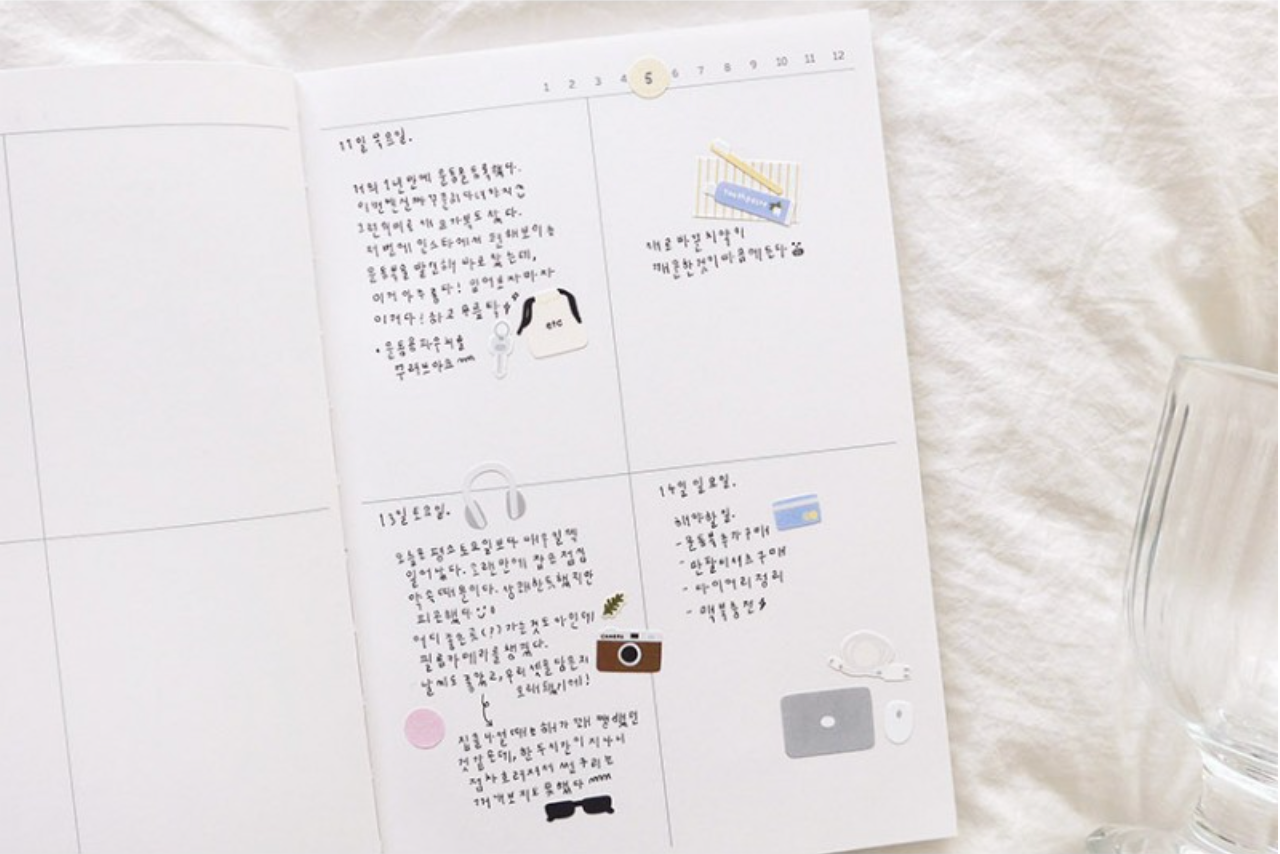 1 2 3 4 5 6 7 8 9 10 11 12
11일 목요일.
거의 1년만에 운동을 등록했다.
이번엔 진짜 꾸준히 다녀야지
그런 의미로 새 요가복도 샀다.
저번에 인스타에서 편해보이는
운동복을 발견해 바로 샀는데,
이거 아주 좋다! 입어보자마자
이거다! 하고 무릎 탁
• 운동용 파우치를
꾸려보아요
etc
toothpaste
새로 바꾼 치약이
개운한 것이 마음에 든다
13일 토요일.
오늘은 평소 토요일보다 아주 일찍
일어났다. 오랜만에 잡은 점심
약속 때문이다. 상쾌한듯 했지만
피곤했다
어디 좋은 곳(?) 가는 것도 아닌데
필름카메라를 챙겼다.
날씨도 좋았고, 우리 셋을 담은지
오래됐기에!
CAMERA
집을 나설 때는 해가 꽤 쨍했던
것 같은데, 한 두시간이 지나서
점차 흐려져서 썬구리는
꺼내보지도 못했다
14일 일요일.
해야할일.
- 운동복 추가구매
- 반팔 티셔츠 구매
- 다이어리 정리
- 맥북 충전